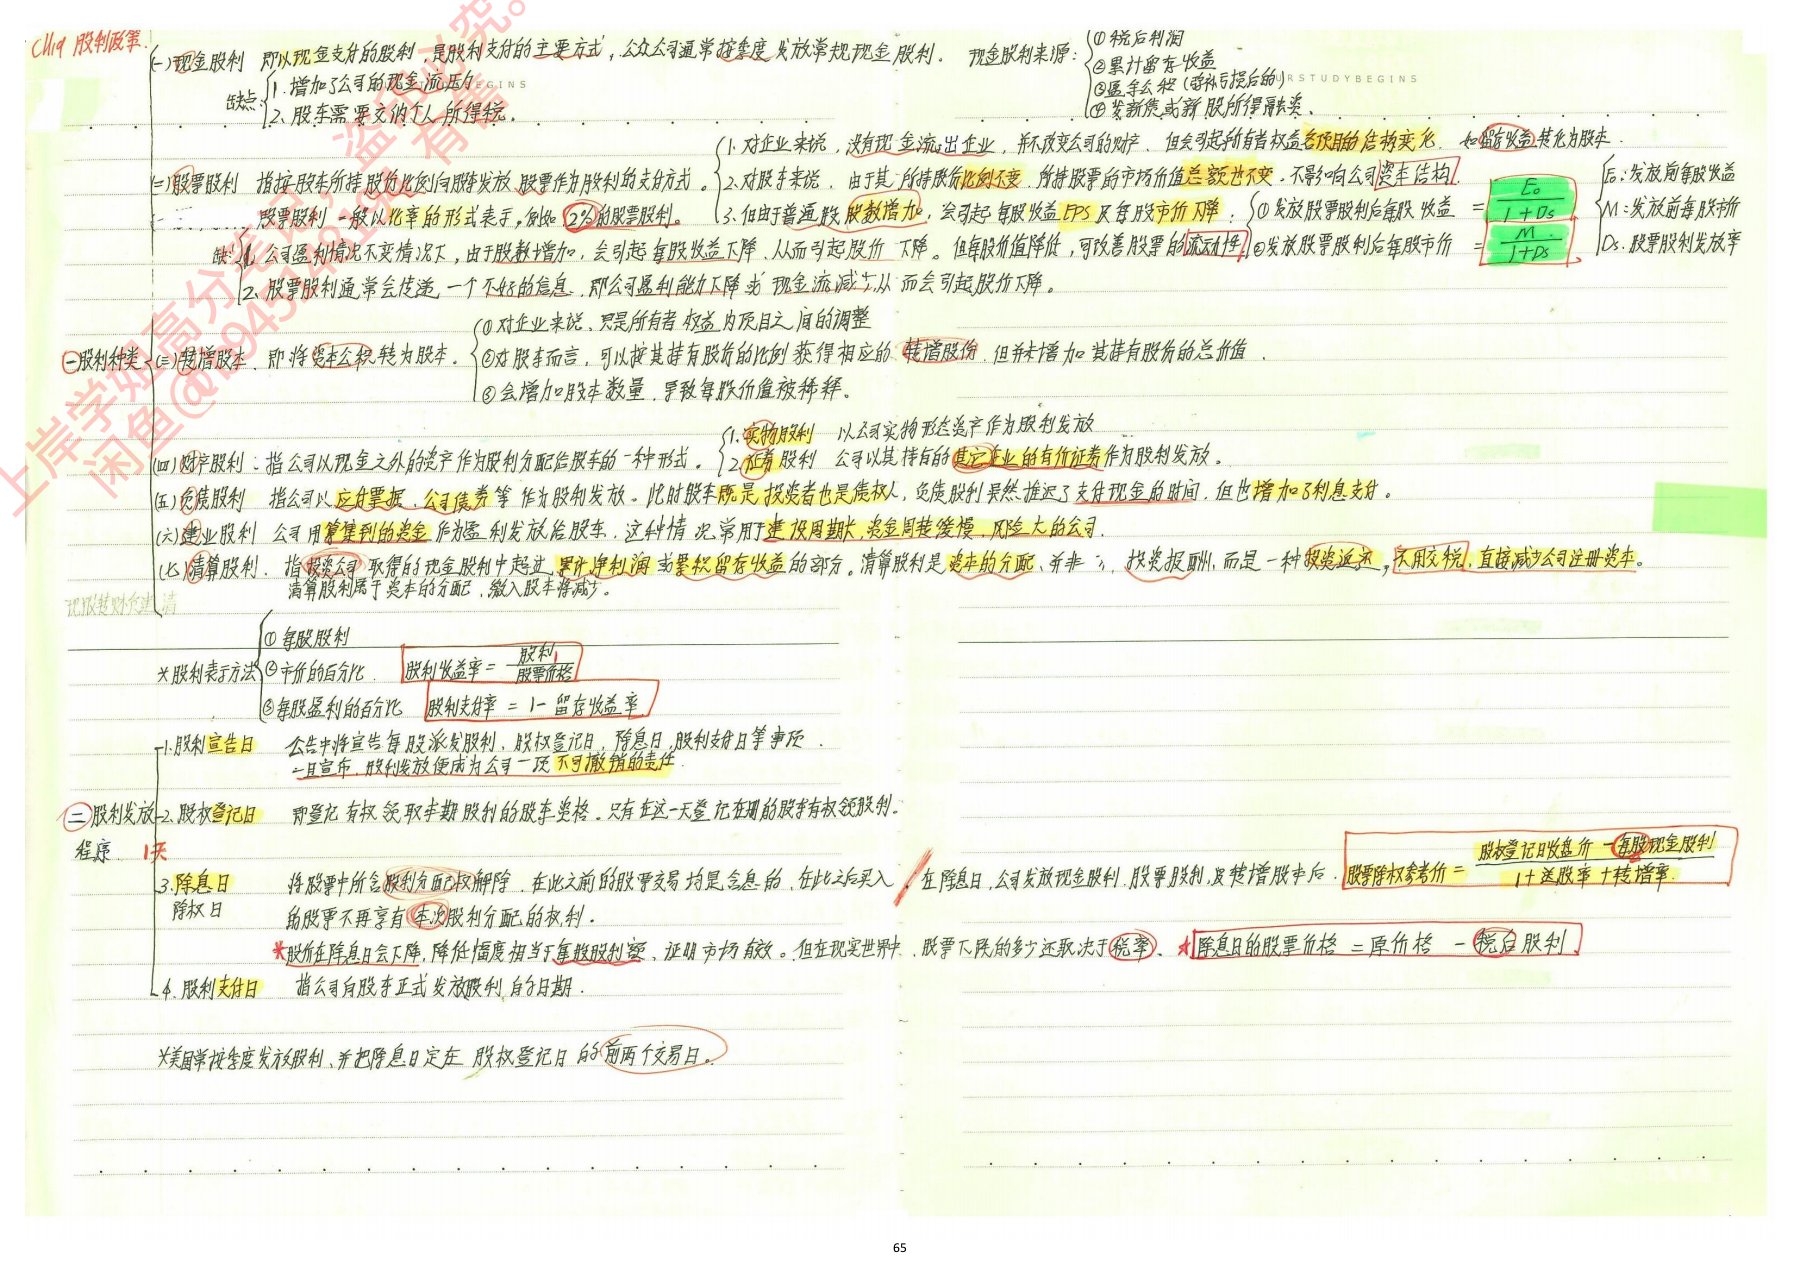 CH19 股利政策.
(一)现金股利 即以现金支付的股利，是股利支付的主要方式，公众公司通常按季度发放常规现金股利. 现金股利来源:
①税后利润
②累计留存收益
③盈余公积(弥补亏损后的)
④发新债或新股所得融资.
缺点:
1. 增加了公司的现金流压力
2. 股东需要交纳个人所得税.
(二)股票股利 指按股东所持股份比例向股东发放股票作为股利的支付方式.
1. 对企业来说，没有现金流出企业，并不改变公司的财产，但会引起所有者权益各项目的结构变化，如留存收益转化为股本.
2. 对股东来说，由于其所持股份比例不变，所持股票的市场价值总额也不变. 不影响公司资本结构.
3. 但由于普通股股数增加，会引起每股收益EPS及每股市价下降.
股票股利一般以比率的形式表示，例如2%的股票股利.
①发放股票股利后每股收益 = E₀ / 1+Ds
②发放股票股利后每股市价 = M / 1+Ds
E₀:发放前每股收益
M:发放前每股市价
Ds:股票股利发放率
缺:
1. 公司盈利情况不变情况下，由于股数增加，会引起每股收益下降，从而引起股价下降. 但每股价值降低，可改善股票的流动性
2. 股票股利通常会传递一个不好的信息，即公司盈利能力下降或现金流减少从而会引起股价下降。
㊀股利种类
(三)转增股本、即将资本公积转为股本.
①对企业来说、只是所有者权益内项目之间的调整
②对股东而言，可以按其持有股份的比例获得相应的转增股份，但并未增加其持有股份的总价值.
③会增加股本数量，导致每股价值被稀释。
(四)财产股利:指公司以现金之外的资产作为股利分配给股东的一种形式.
1. 实物股利 以公司实物形态资产作为股利发放
2. 证券股利 公司以其持有的其它企业的有价证券作为股利发放。
(五)负债股利 指公司以应付票据、公司债券等作为股利发放。此时股东既是投资者也是债权人，负债股利虽然推迟了支付现金的时间，但也增加了利息支付。
(六)建业股利 公司用筹集到的资金作为股利发放给股东，这种情况常用于建设周期长,资金周转缓慢、风险大的公司.
(七)清算股利、指投资公司取得的现金股利中超过累计净利润或累积留存收益的部分。清算股利是资本的分配、并非 投资报酬，而是一种投资返还，不用交税，直接减少公司注册资本。
清算股利属于资本的分配，缴入股本将减少。
现股转财负建清
*股利表示方法
①每股股利
②市价的百分比 股利收益率 = 股利 / 股票价格
③每股盈利的百分比 股利支付率 = 1- 留存收益率
㊁股利发放程序 1天
1.股利宣告日 公告中将宣告每股派发股利、股权登记日，除息日，股利支付日等事项.
一旦宣布，股利发放便成为公司一项不可撤销的责任.
2.股权登记日 即登记有权领取本期股利的股东资格.只有在这一天登记在册的股东有权领股利.
3.除息日
除权日
将股票中所含股利分配权解除，在此之前的股票交易均是含息的，在此之后买入
的股票不再享有本次股利分配的权利.
在除息日，公司发放现金股利，股票股利，及转增股本后. 股票除权参考价 = 股权登记日收盘价 - 每股现金股利 / 1+送股率+转增率.
*股价在除息日会下降，降低幅度相当于每股股利额，证明市场有效。但在现实世界中，股票下跌的多少还取决于税率. *除息日的股票价格 = 原价格 - 税后股利
4.股利支付日 指公司向股东正式发放股利的日期.
*美国常按季度发放股利、并把除息日定在股权登记日的前两个交易日。
65